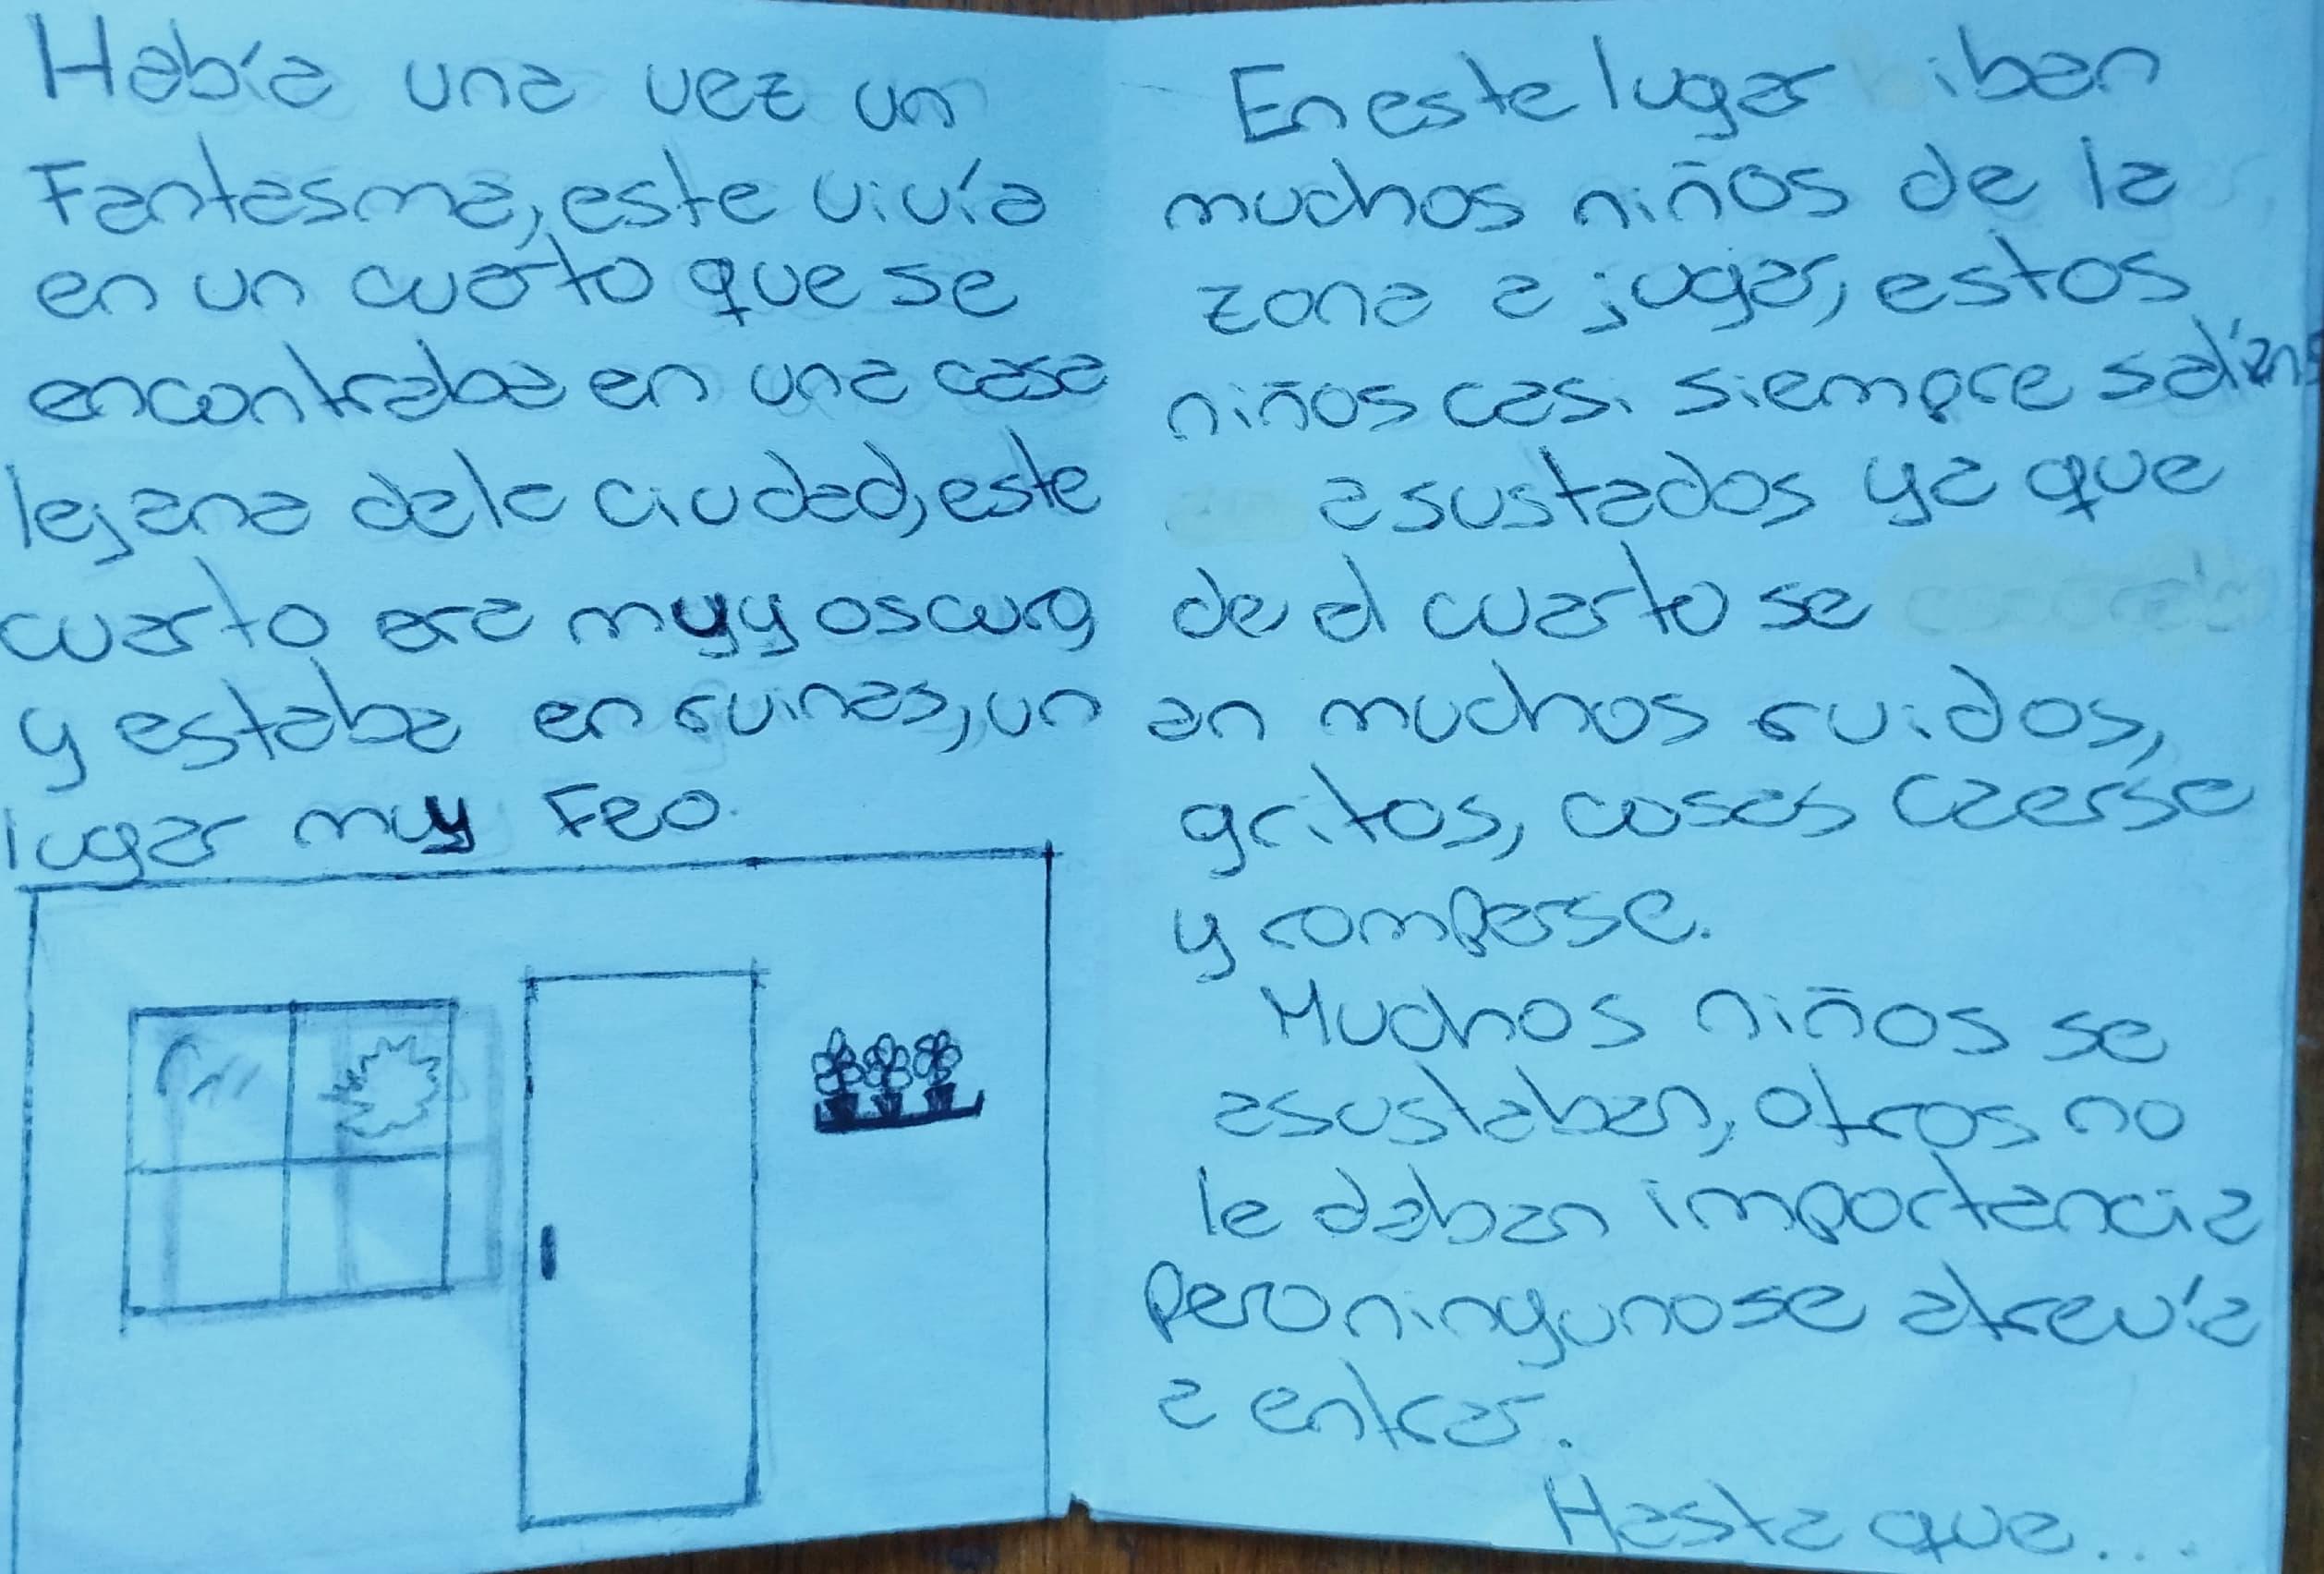 Había una vez un
Fantasma, este vivía
en un cuarto que se
encontraba en una casa
lejana de la ciudad, este
cuarto era muy y oscuro,
y estaba en ruinas, un
lugar muy Feo.
En este lugar iban
muchos niños de la
zona a jugar, estos
niños casi siempre salían
asustados ya que
de el cuarto se
an muchos ruidos,
gritos, cosas caerse
y romperse.
Muchos niños se
asustaban, otros no
le daban importancia
Pero ninguno se atrevía
a entrar.
Hasta que...